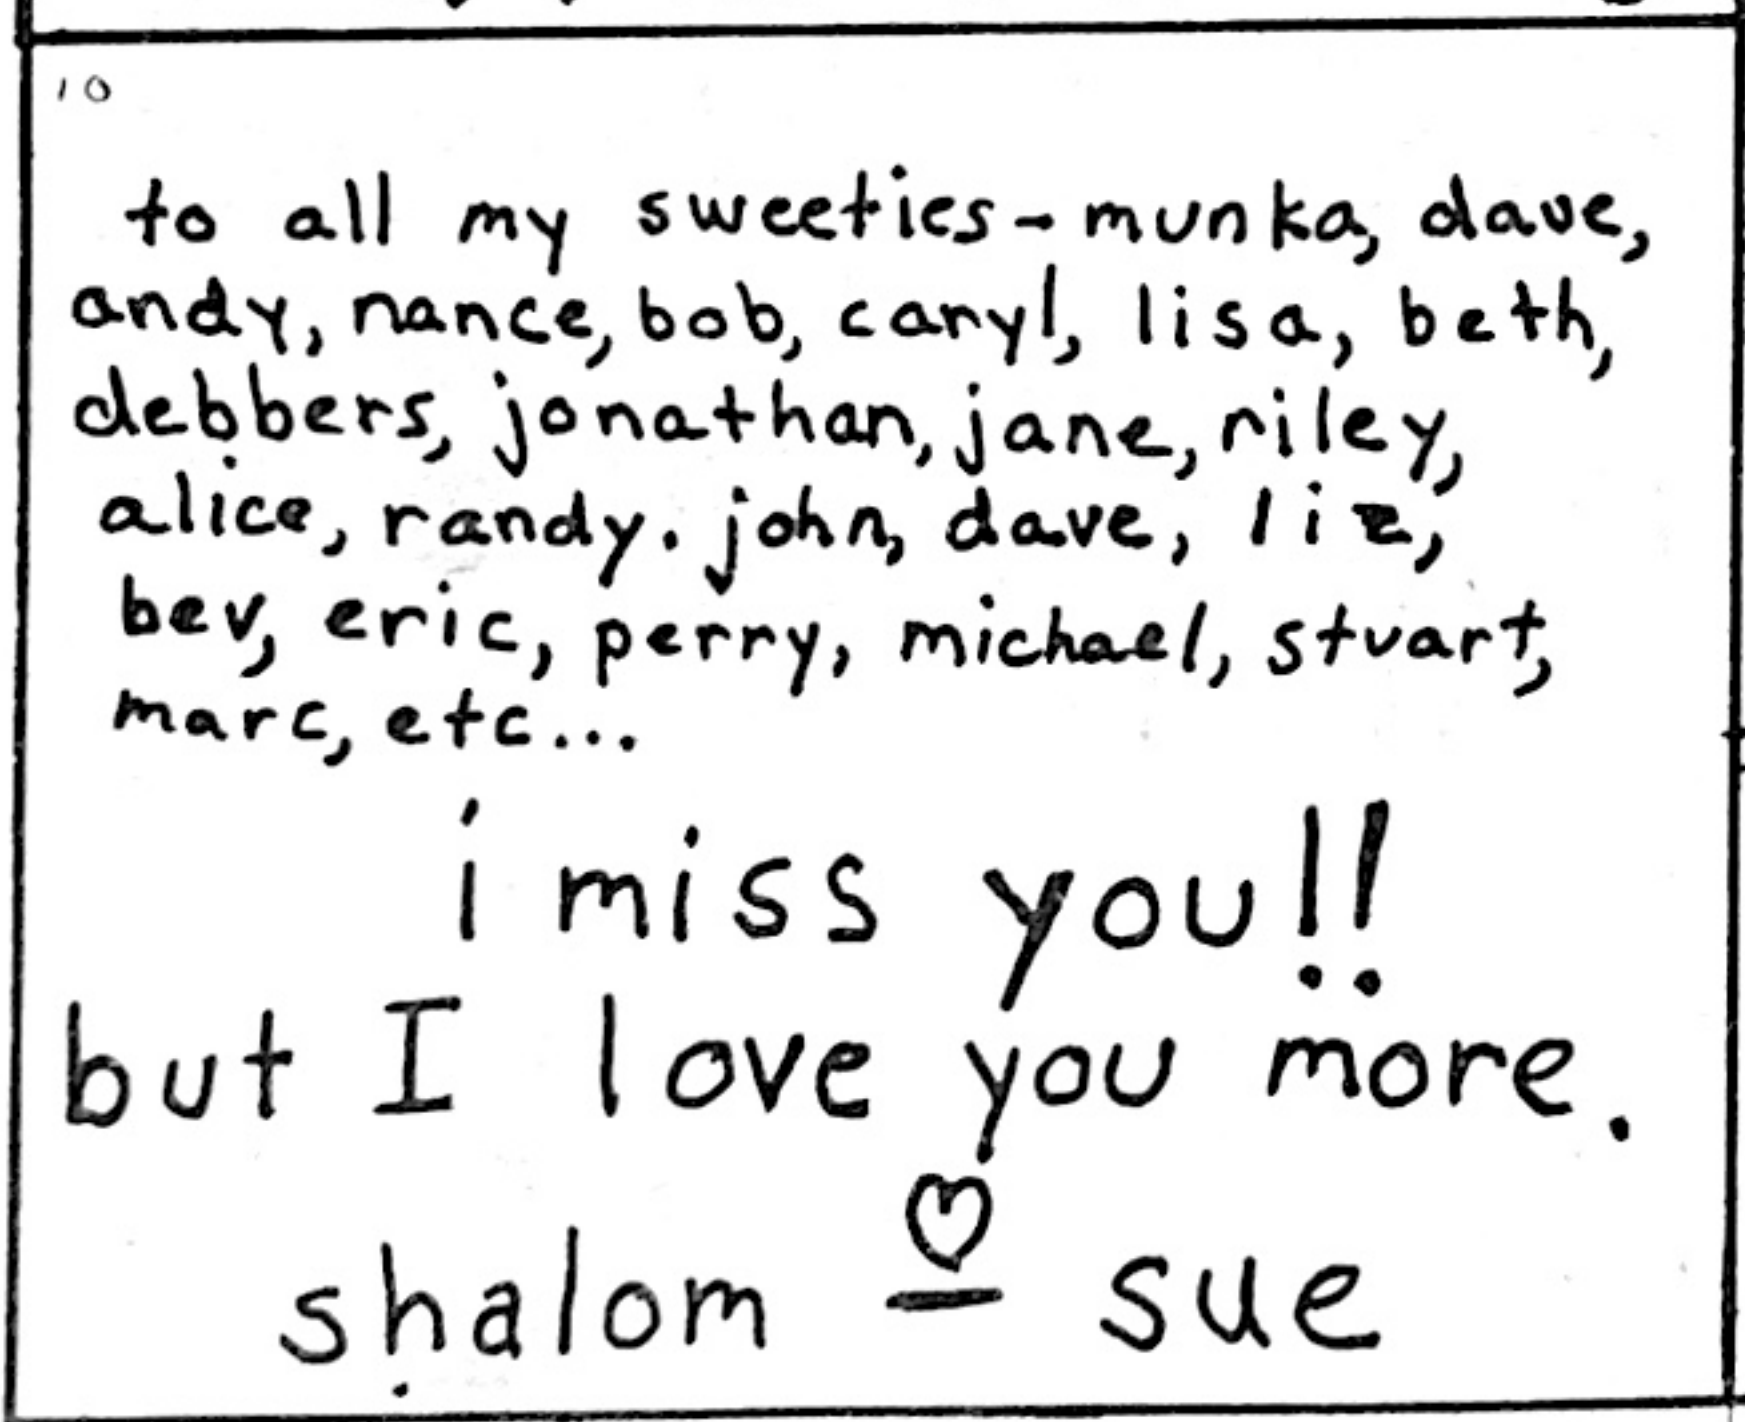 10
to all my sweeties - munka, dave,
andy, nance, bob, caryl, lisa, beth,
debbers, jonathan, jane, riley,
alice, randy. john, dave, liz,
bev, eric, perry, michael, stuart,
marc, etc...
i miss you!!
but I love you more.
shalom ♡ — sue